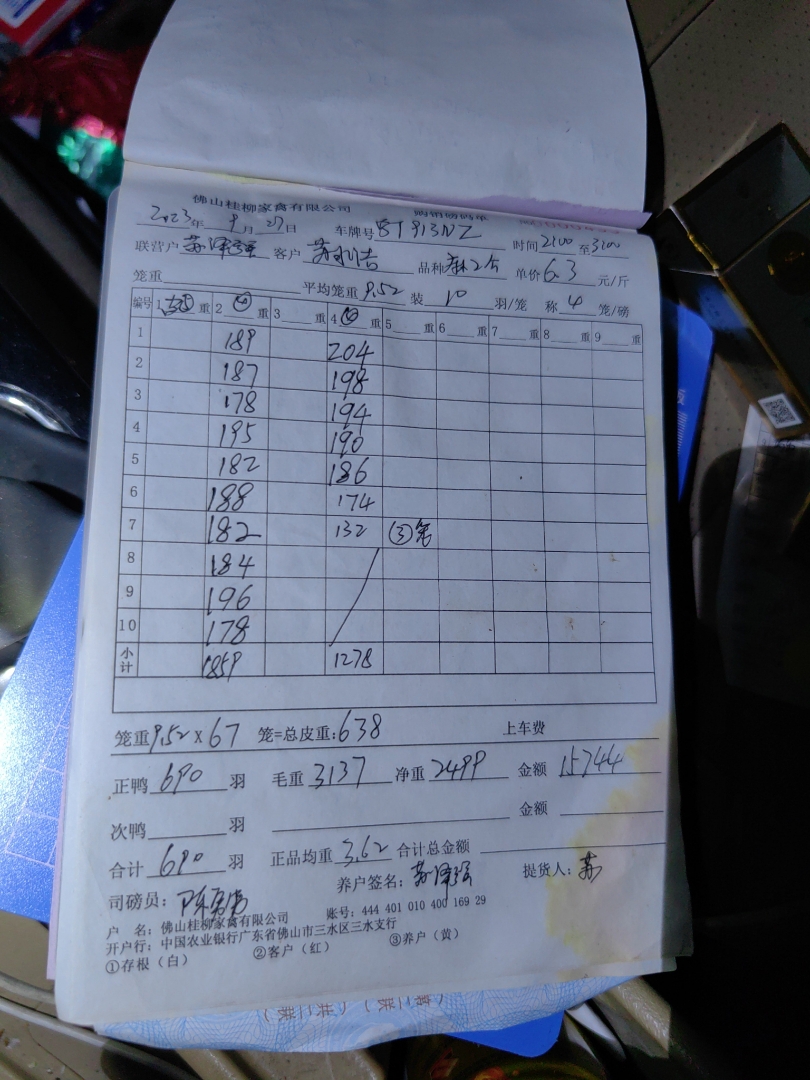 佛山桂柳家禽有限公司
2023年 9月 27日 车牌号 8T913NZ 时间 2500 至 3200
联营户 苏泽强 客户 品种 单价 6.3 元/斤
笼重 平均笼重 9.52 装 10 羽/笼 称 4 笼/磅
编号 1 重 2 ④ 重 3 重 4 重 5 重 6 重 7 重 8 重 9 重
1 189 204
2 187 198
3 178 194
4 195 190
5 182 186
6 188 174
7 182 132 ③笼
8 184
9 196
10 178
小计 1859 1278
笼重 9.52 x 67 笼=总皮重: 638 上车费
正鸭 690 羽 毛重 3137 净重 2499 金额 15744
次鸭 羽 金额
合计 690 羽 正品均重 3.62 合计总金额
司磅员: 养户签名: 苏泽强 提货人: 苏
户 名: 佛山桂柳家禽有限公司 账号: 444 401 010 400 169 29
开户行: 中国农业银行广东省佛山市三水区三水支行
①存根（白） ②客户（红） ③养户（黄）